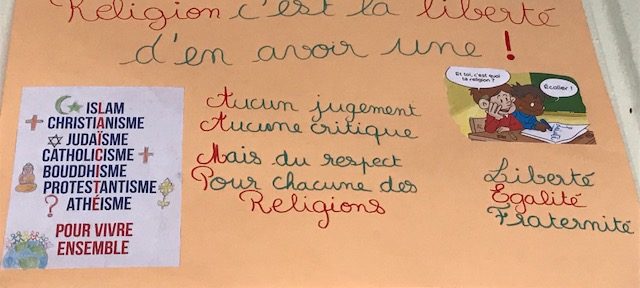 Religion c'est la liberté
d'en avoir une !
ISLAM
CHRISTIANISME
JUDAÏSME
CATHOLICISME
BOUDDHISME
PROTESTANTISME
? ATHÉISME
POUR VIVRE
ENSEMBLE
Aucun jugement
Aucune critique
Mais du respect
Pour chacune des
Religions
Et toi, c'est quoi
ta religion ?
Écolier !
Liberté
Egalité
Fraternité